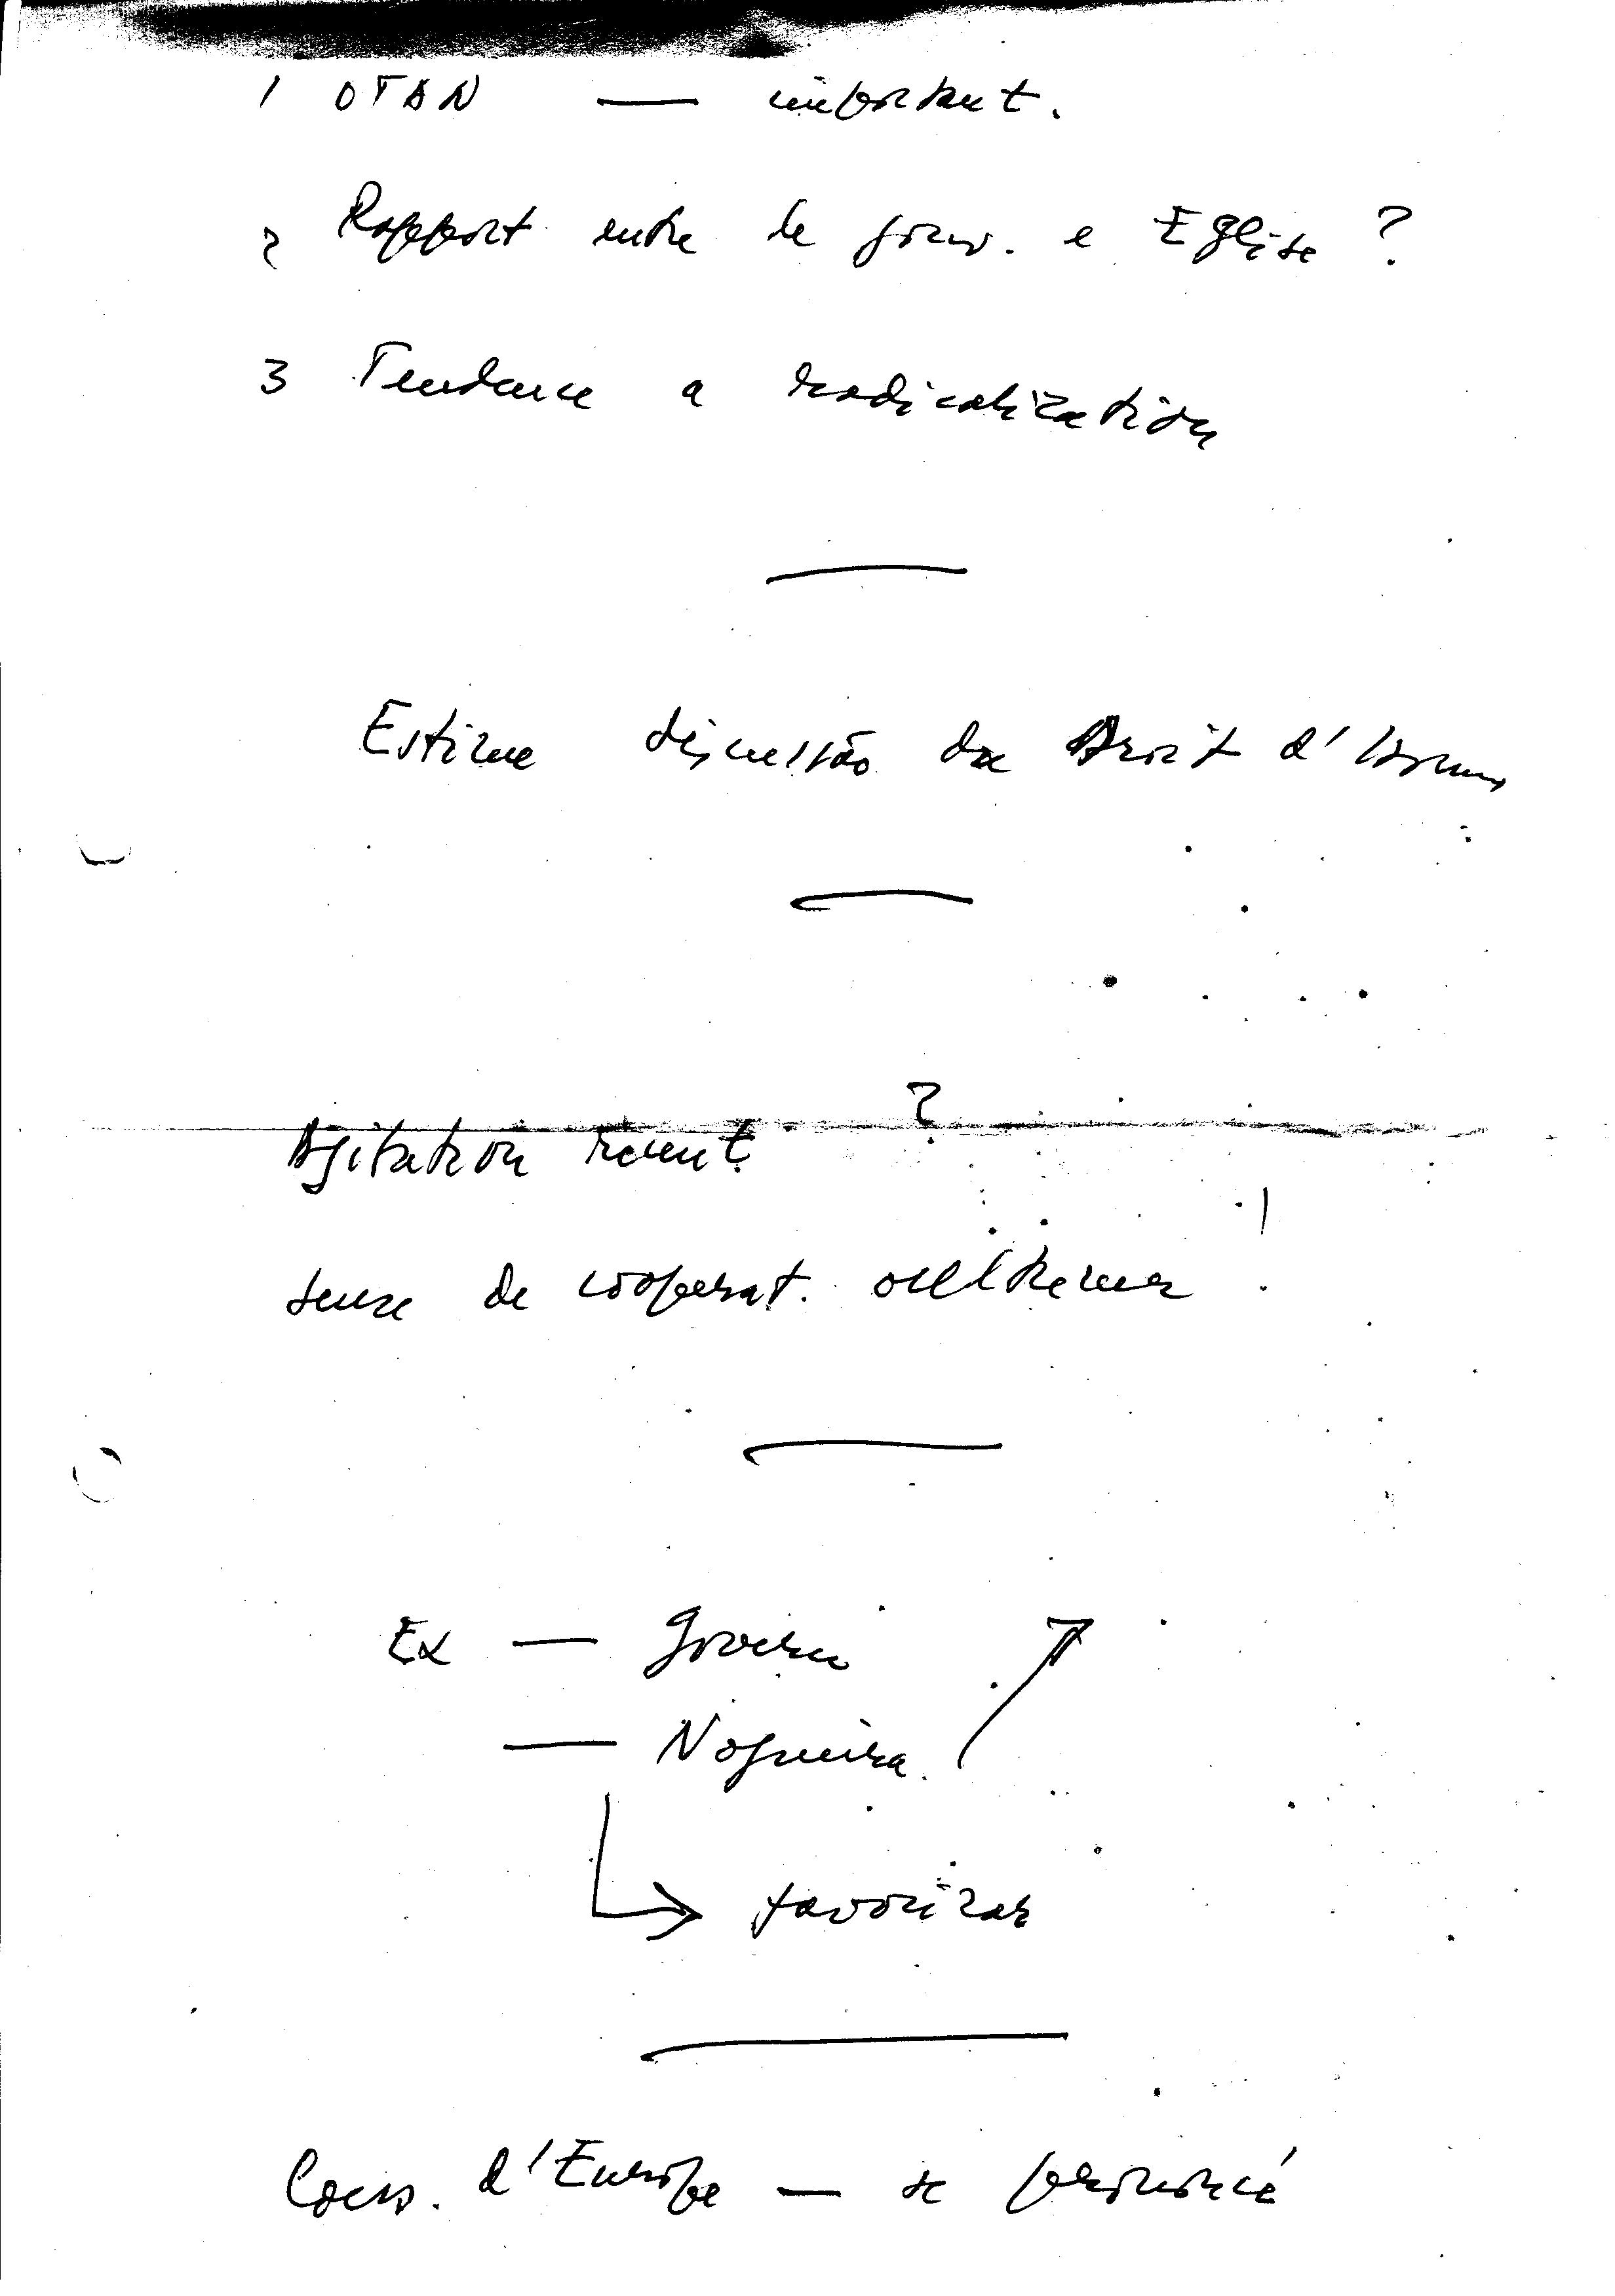 1 OTAN — important.
2 Rapport entre le gouv. e Eglise ?
3 Tendance a radicalization
Estime discussão du Droit d'homme
Agitation recent ?
sense de cooperat. outremer !
Ex — Govern
— Nogueira
favorizar
Cons. d'Europe — se prononcé